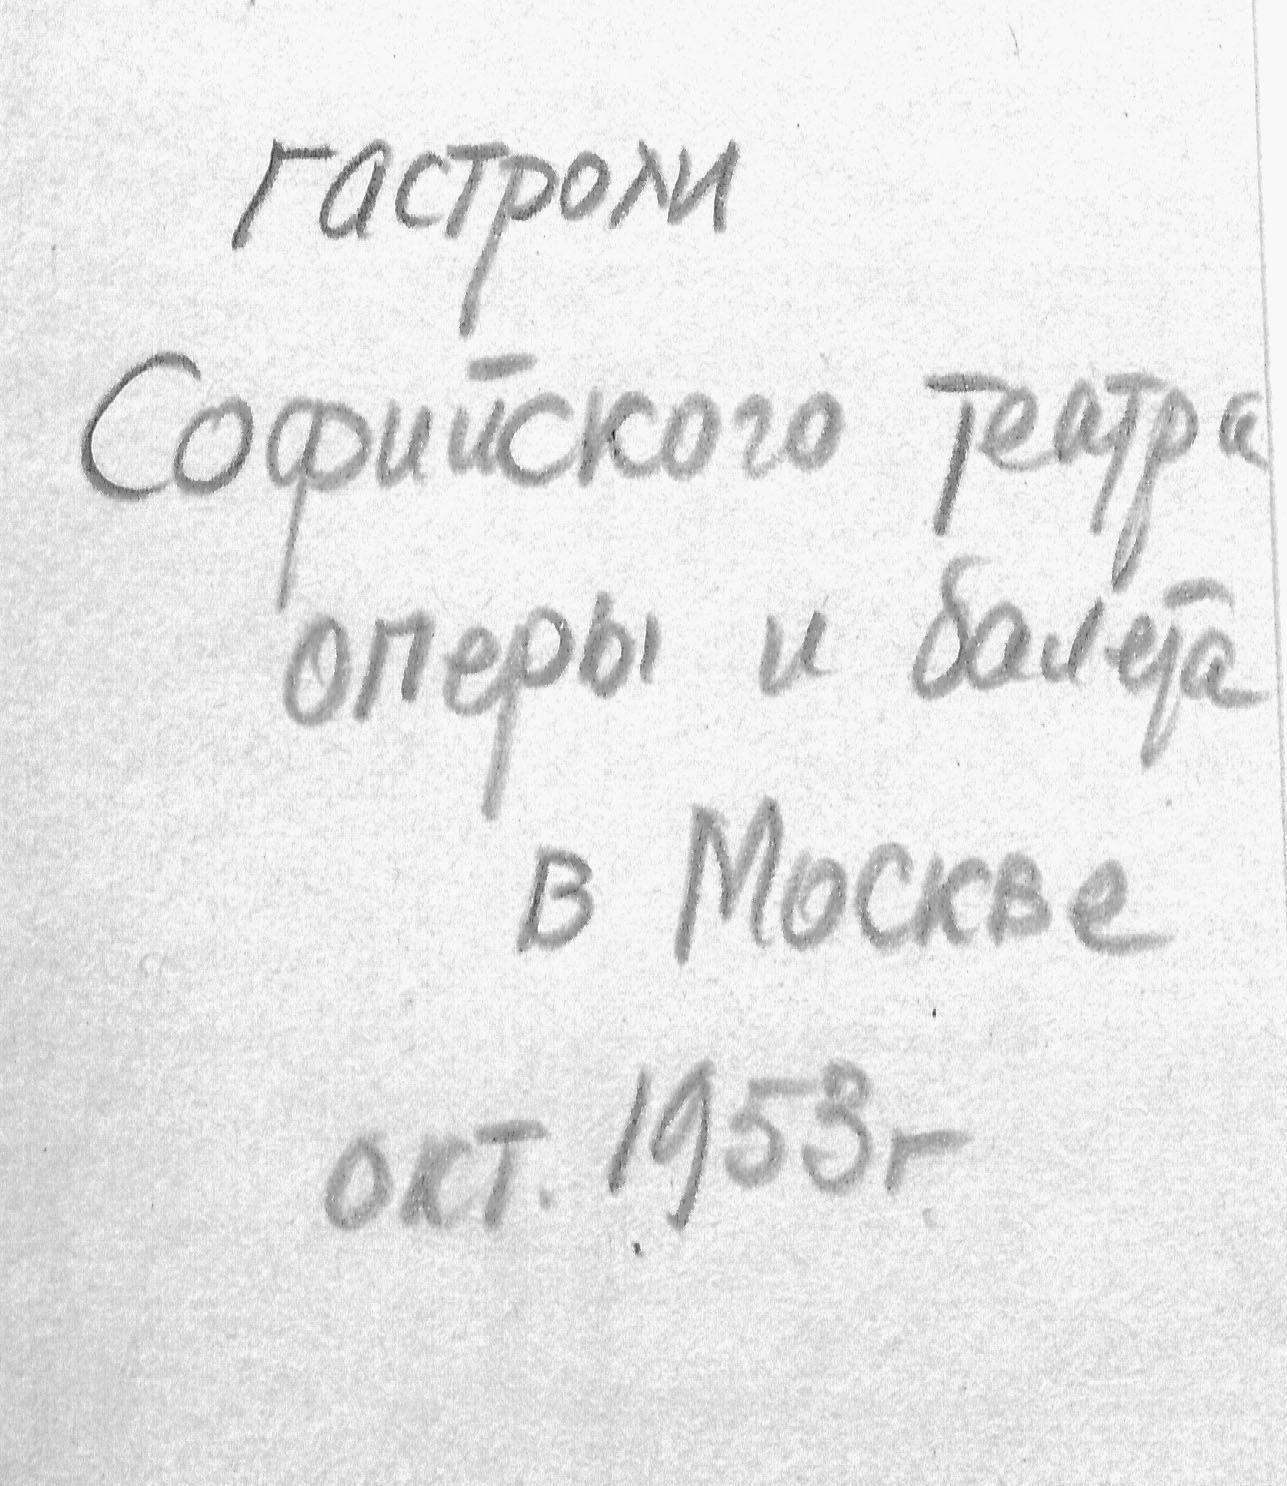 гастроли
Софийского театра
оперы и балета
в Москве
окт. 1953г